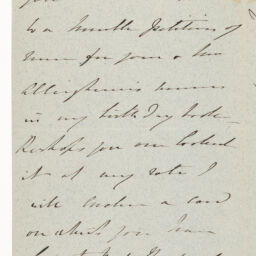 to a humble petition of
mine for your & Mr
Allingham's names
in my birth Day book –
Perhaps you over looked
it at any rate I
will enclose a card
on which you have